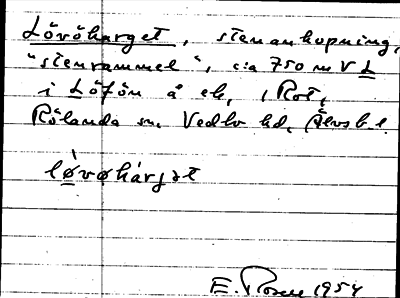 Lövöharget, stenanhopning,
"stenrammel", c:a 750 m V L
i Löfön å ek, 1 Rot,
Rölanda sn. Vedbo hd, Älvsb. l.
løvøhárjət
E. Rosen 1954